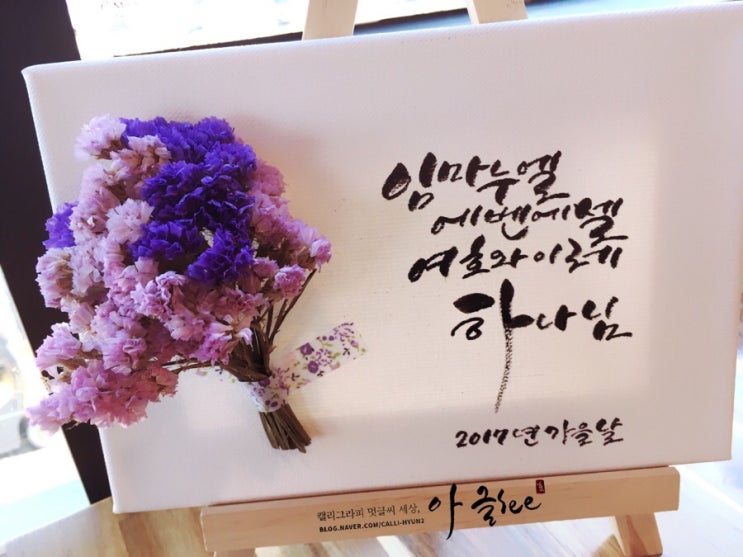 임마누엘
에벤에셀
여호와이레
하나님
2017년 가을날
캘리그라피 멋글씨 세상,
BLOG.NAVER.COM/CALLI-HYUN2
아글see